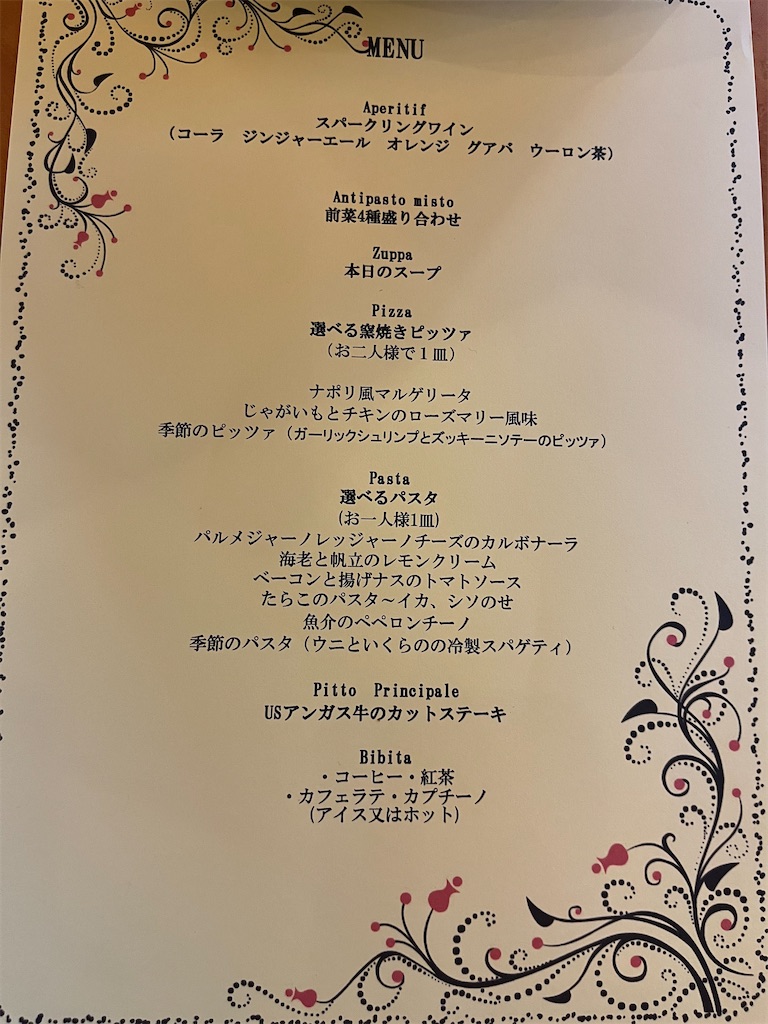 MENU
Aperitif
スパークリングワイン
（コーラ　ジンジャーエール　オレンジ　グアバ　ウーロン茶）
Antipasto misto
前菜4種盛り合わせ
Zuppa
本日のスープ
Pizza
選べる窯焼きピッツァ
（お二人様で１皿）
ナポリ風マルゲリータ
じゃがいもとチキンのローズマリー風味
季節のピッツァ（ガーリックシュリンプとズッキーニソテーのピッツァ）
Pasta
選べるパスタ
(お一人様1皿)
パルメジャーノレッジャーノチーズのカルボナーラ
海老と帆立のレモンクリーム
ベーコンと揚げナスのトマトソース
たらこのパスタ～イカ、シソのせ
魚介のペペロンチーノ
季節のパスタ（ウニといくらのの冷製スパゲティ）
Pitto　Principale
USアンガス牛のカットステーキ
Bibita
・コーヒー・紅茶
・カフェラテ・カプチーノ
(アイス又はホット)